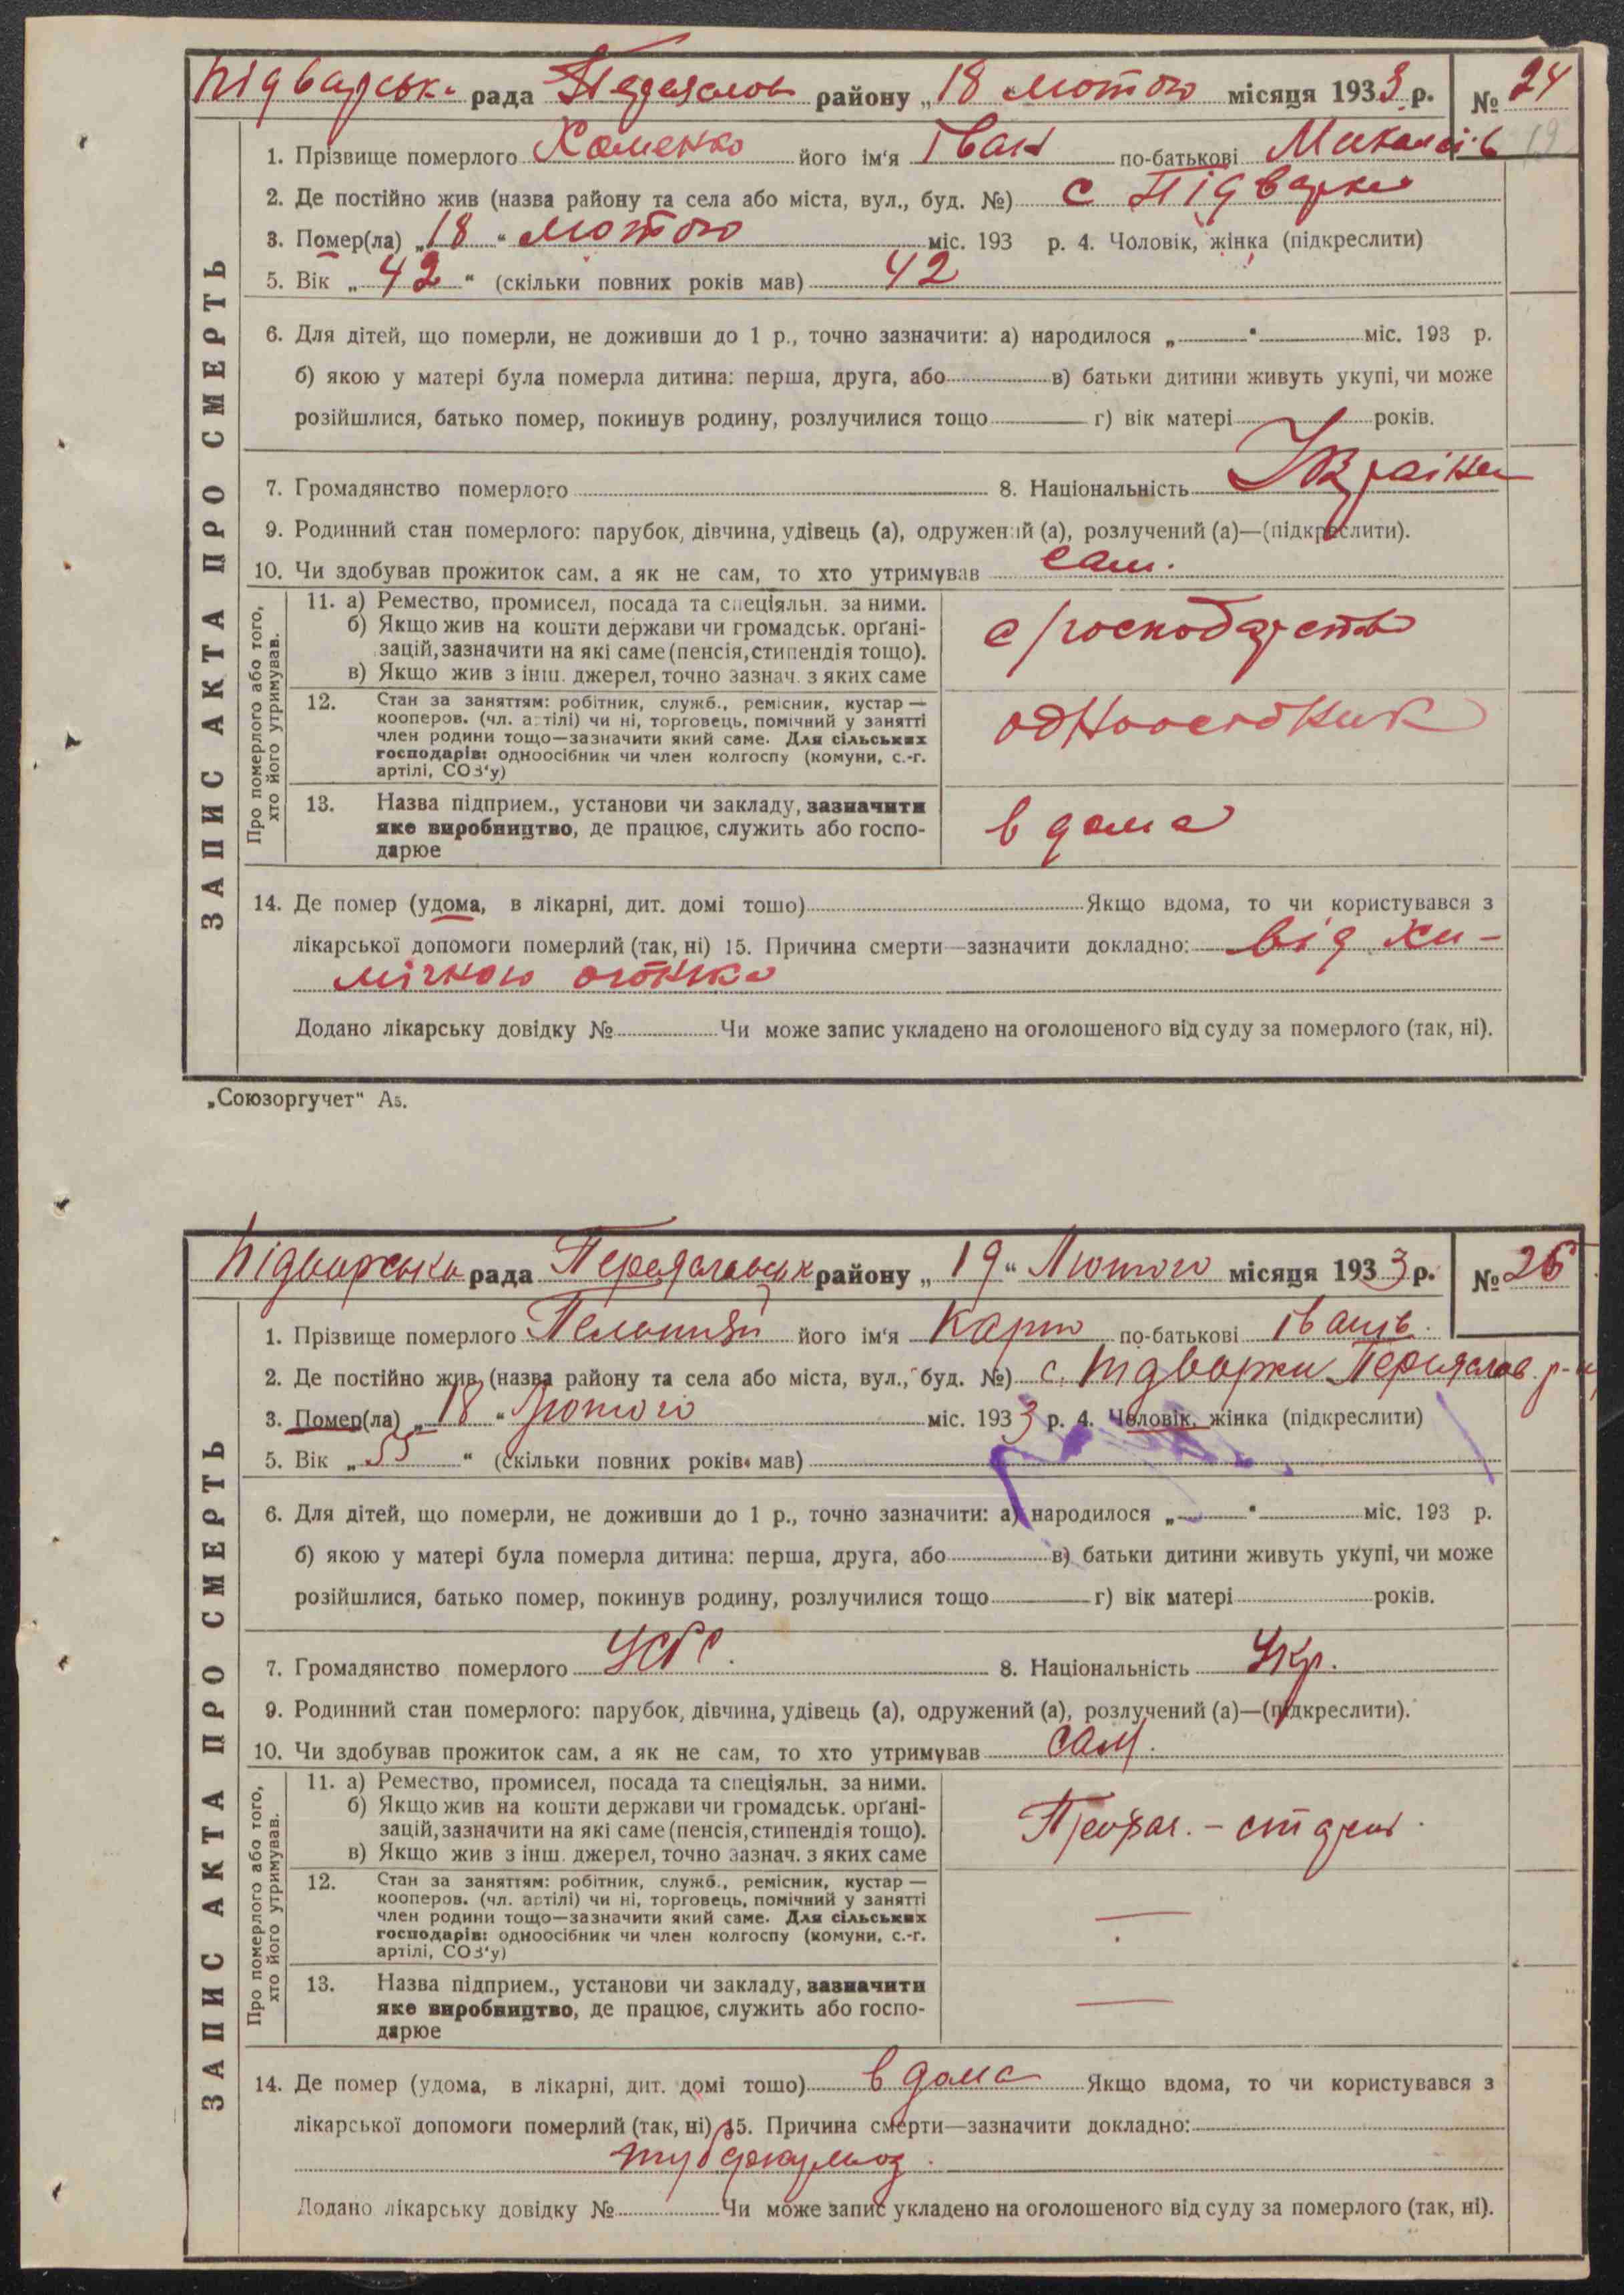 Підварська рада Переяслов району „18 лютого місяця 1933 р. № 24
19
ЗАПИС АКТА ПРО СМЕРТЬ
1. Прізвище померлого Хоменко його ім'я Іван по-батькові Миколаїв
2. Де постійно жив (назва району та села або міста, вул., буд. №) с Підварки
3. Помер(ла) „18“ лютого міс. 193 р. 4. Чоловік, жінка (підкреслити)
5. Вік „42“ (скільки повних років мав) 42
6. Для дітей, що померли, не доживши до 1 р., точно зазначити: а) народилося „ “ міс. 193 р.
б) якою у матері була померла дитина: перша, друга, або в) батьки дитини живуть укупі, чи може
розійшлися, батько помер, покинув родину, розлучилися тощо г) вік матері років.
7. Громадянство померлого 8. Національність
9. Родинний стан померлого: парубок, дівчина, удівець (а), одружений (а), розлучений (а)—(підкреслити).
10. Чи здобував прожиток сам, а як не сам, то хто утримував сам.
Про померлого або того,
хто його утримував.
11. а) Ремество, промисел, посада та спеціяльн. за ними.
б) Якщо жив на кошти держави чи громадськ. орґані-
зацій, зазначити на які саме (пенсія, стипендія тощо).
в) Якщо жив з інш. джерел, точно зазнач. з яких саме
12. Стан за заняттям: робітник, служб., ремісник, кустар —
кооперов. (чл. артілі) чи ні, торговець, помічний у занятті
член родини тощо—зазначити який саме. Для сільських
господарів: одноосібник чи член колгоспу (комуни, с.-г.
артілі, СОЗ'у)
одноосібник
13. Назва підприєм., установи чи закладу, зазначити
яке виробництво, де працює, служить або госпо-
дарює
в дома
14. Де помер (удома, в лікарні, дит. домі тощо) Якщо вдома, то чи користувався з
лікарської допомоги померлий (так, ні) 15. Причина смерти—зазначити докладно: від
Додано лікарську довідку № Чи може запис укладено на оголошеного від суду за померлого (так, ні).
„Союзоргучет“ А5.
Підварська рада Переяславськ району „19“ Лютого місяця 1933 р. № 26
ЗАПИС АКТА ПРО СМЕРТЬ
1. Прізвище померлого його ім'я Карпо по-батькові Іванів
2. Де постійно жив (назва району та села або міста, вул., буд. №) с. Підварки Переяслав. р-н
3. Помер(ла) „18“ Лютого міс. 1933 р. 4. Чоловік, жінка (підкреслити)
5. Вік „55“ (скільки повних років мав)
6. Для дітей, що померли, не доживши до 1 р., точно зазначити: а) народилося „ “ міс. 193 р.
б) якою у матері була померла дитина: перша, друга, або в) батьки дитини живуть укупі, чи може
розійшлися, батько помер, покинув родину, розлучилися тощо г) вік матері років.
7. Громадянство померлого УСРС. 8. Національність Укр.
9. Родинний стан померлого: парубок, дівчина, удівець (а), одружений (а), розлучений (а)—(підкреслити).
10. Чи здобував прожиток сам, а як не сам, то хто утримував сам.
Про померлого або того,
хто його утримував.
11. а) Ремество, промисел, посада та спеціяльн. за ними.
б) Якщо жив на кошти держави чи громадськ. орґані-
зацій, зазначити на які саме (пенсія, стипендія тощо).
в) Якщо жив з інш. джерел, точно зазнач. з яких саме
12. Стан за заняттям: робітник, служб., ремісник, кустар —
кооперов. (чл. артілі) чи ні, торговець, помічний у занятті
член родини тощо—зазначити який саме. Для сільських
господарів: одноосібник чи член колгоспу (комуни, с.-г.
артілі, СОЗ'у)
13. Назва підприєм., установи чи закладу, зазначити
яке виробництво, де працює, служить або госпо-
дарює
14. Де помер (удома, в лікарні, дит. домі тощо) в дома Якщо вдома, то чи користувався з
лікарської допомоги померлий (так, ні) 15. Причина смерти—зазначити докладно:
туберкульоз.
Додано лікарську довідку № Чи може запис укладено на оголошеного від суду за померлого (так, ні).